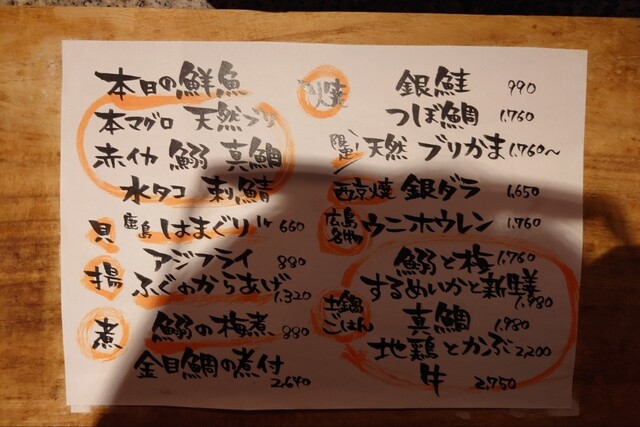 本日の鮮魚
本マグロ 天然ブリ
赤イカ 鰯 真鯛
水タコ 刺鯖
貝 鹿島 はまぐり 1ヶ 660
揚 アジフライ 880
ふぐのからあげ 1,320
煮 鰯の梅煮 880
金目鯛の煮付 2,640
焼 銀鮭 990
つぼ鯛 1,760
限定! 天然 ブリかま 1,760〜
西京焼 銀ダラ 1,650
広島名物 ウニホウレン 1,760
土鍋ごはん
鰯と梅 1,760
するめいかと新生姜 1,980
真鯛 1,980
地鶏とかぶ 2,200
牛 2,750